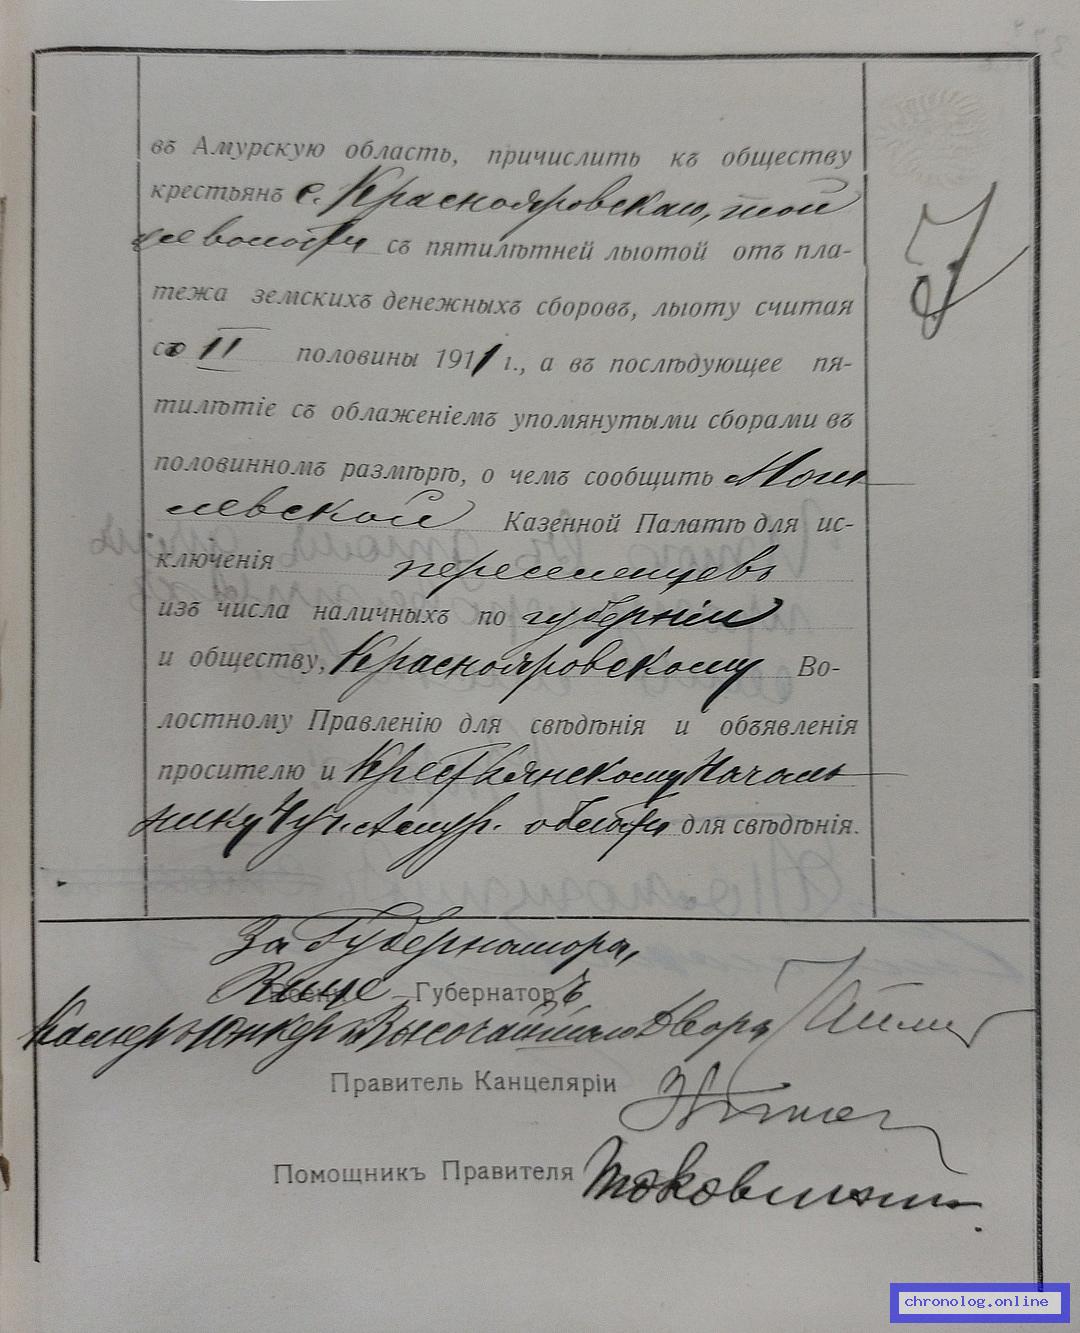 въ Амурскую область, причислить къ обществу
крестьянъ с. Краснояровскаго, той
же волости съ пятилѣтней льготой отъ пла-
тежа земскихъ денежныхъ сборовъ, льготу считая
со II половины 1911 г., а въ послѣдующее пя-
тилѣтіе съ обложеніемъ упомянутыми сборами въ
половинномъ размѣрѣ, о чемъ сообщить Моги
левской Казенной Палатѣ для ис-
ключенія переселенцевъ
изъ числа наличныхъ по губерніи
и обществу, Краснояровскому Во-
лостному Правленію для свѣдѣнія и объявленія
просителю и Крестьянскому Началь
нику уч. Амур. области для свѣдѣнія.
За Губернатора,
Вице Губернаторъ
Камеръ Юнкеръ Высочайшаго Двора
Правитель Канцеляріи
Помощникъ Правителя
chronolog.online